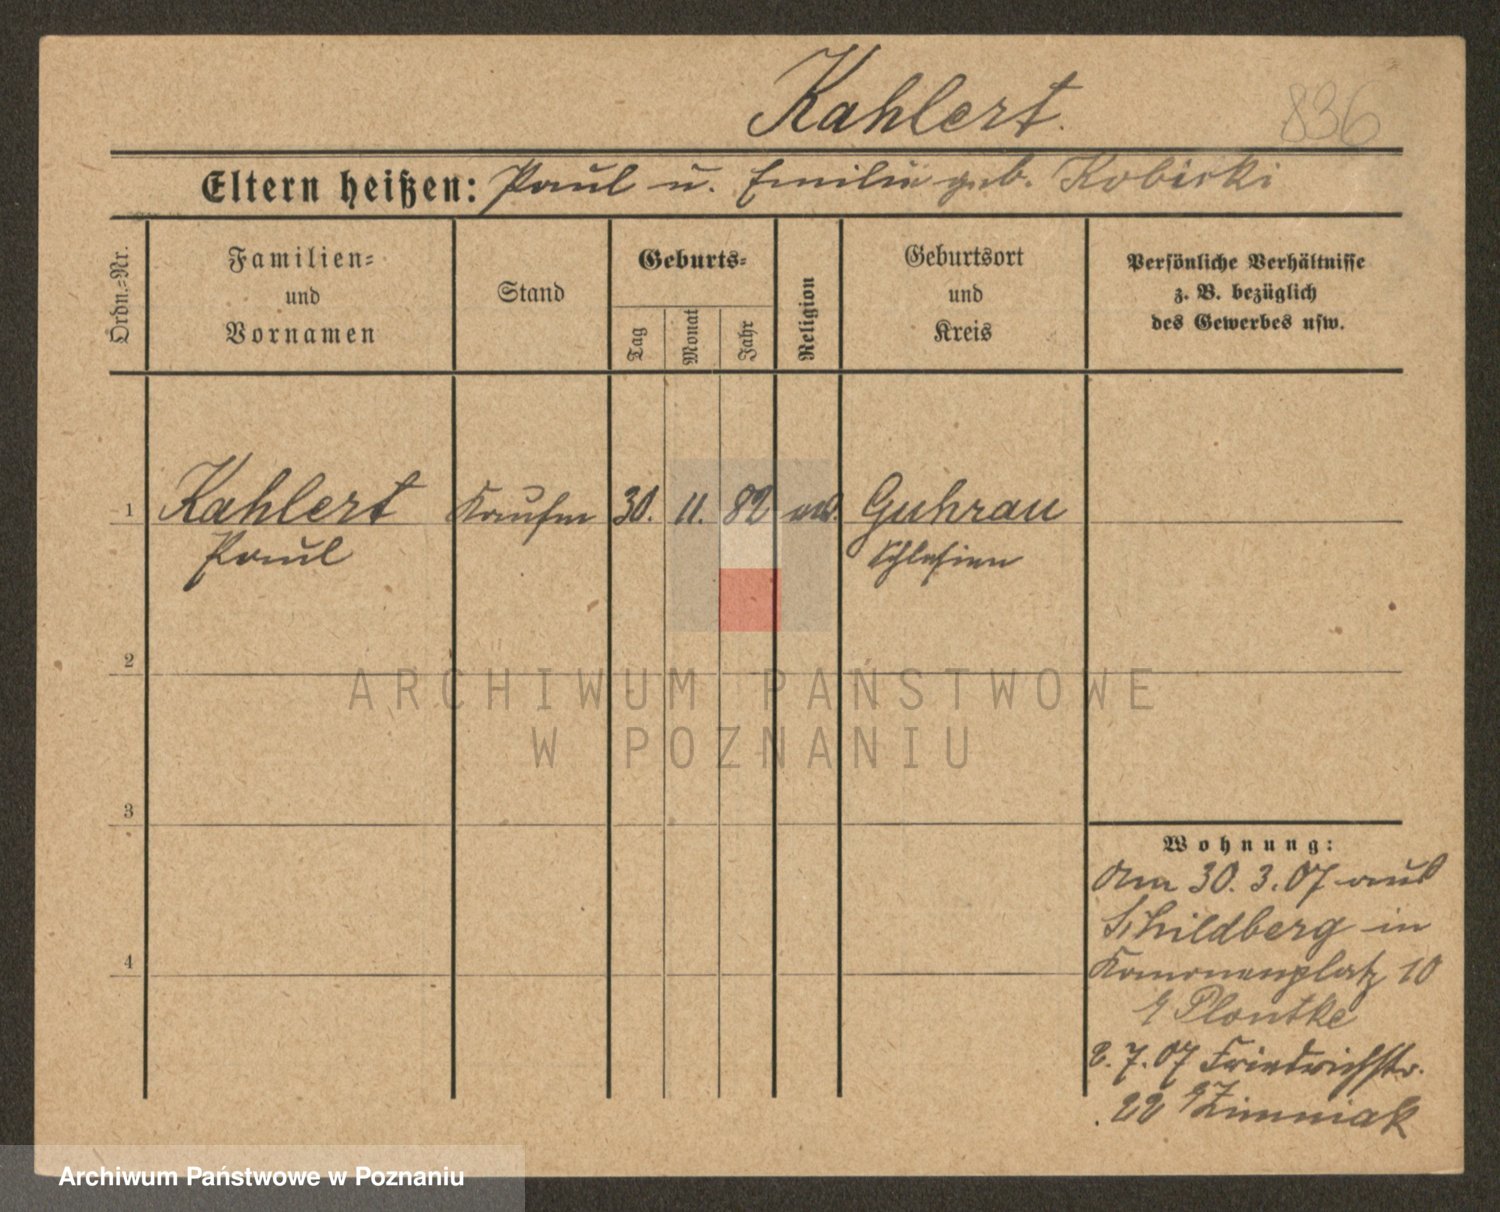 Kahlert.
836
Eltern heißen: Paul u. Emilie geb. Kobiski
Ordn.-Nr.
Familien-
und
Vornamen
Stand
Geburts-
Tag
Monat
Jahr
Religion
Geburtsort
und
Kreis
Persönliche Verhältnisse
z. B. bezüglich
des Gewerbes usw.
1
Kahlert
Paul
Kaufm
30.
11.
82
Guhrau
Schlesien
2
ARCHIWUM PAŃSTWOWE
W POZNANIU
3
4
Wohnung:
Am 30. 3. 07 aus
Schildberg in
Kanonenplatz 10
Plontke
2. 7. 07 Friedrichstr.
22 Zimniak
Archiwum Państwowe w Poznaniu